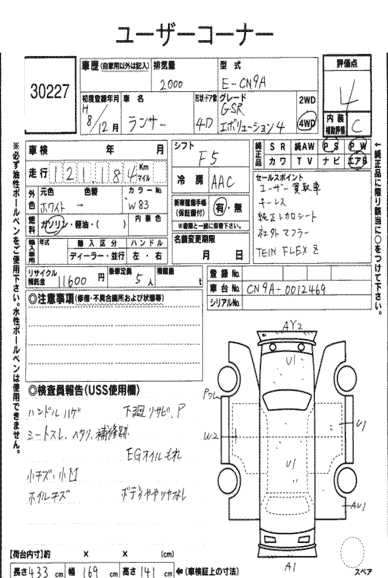 ユーザーコーナー
30227
車歴 (自家用以外は記入)
排気量 2000
型式 E-CN9A
評価点 4
初度登録年月 H 8/12月
車名 ランサー
形状・ドア数 4D
グレード GSR エボリューション4
2WD
4WD
内装補助評価 C
車検 年 月
シフト F5
純正品 SR 純AW PS PW
カワ TV ナビ エアB
走行 121184 Km マイル
冷房 AAC
セールスポイント
ユーザー買取車
キーレス
純正レカロシート
社外マフラー
TEIN FLEX Z
外色 元色 ホワイト → 色替
カラーNo. W83
燃料 ガソリン・軽油・( )
内装色
新車整備手帳(保証書付) 有・無
名義変更期限 月 日
輸入車 年式 輸入区分 ハンドル
ディーラー・並行 左・右
リサイクル預託金 11600円
乗車定員 5人
積載量 t
登録No.
車台No. CN9A-0012469
シリアルNo.
◎注意事項(修復・不具合箇所および状態等)
◎検査員報告(USS使用欄)
ハンドルハゲ 下廻リサビ、P
シートスレ、ヘタリ、補修跡
EGオイルモレ
小キズ・小凹
ホイルキズ
AY2
U1
U1
U1
U1
W2
A1
【荷台内寸】約 × × (cm)
長さ433cm 幅169cm 高さ141cm ←(車検証上の寸法)
スペア
※必ず油性ボールペンをご使用下さい。水性ボールペンは使用できません。
←純正品に限り該当に○をつけて下さい。